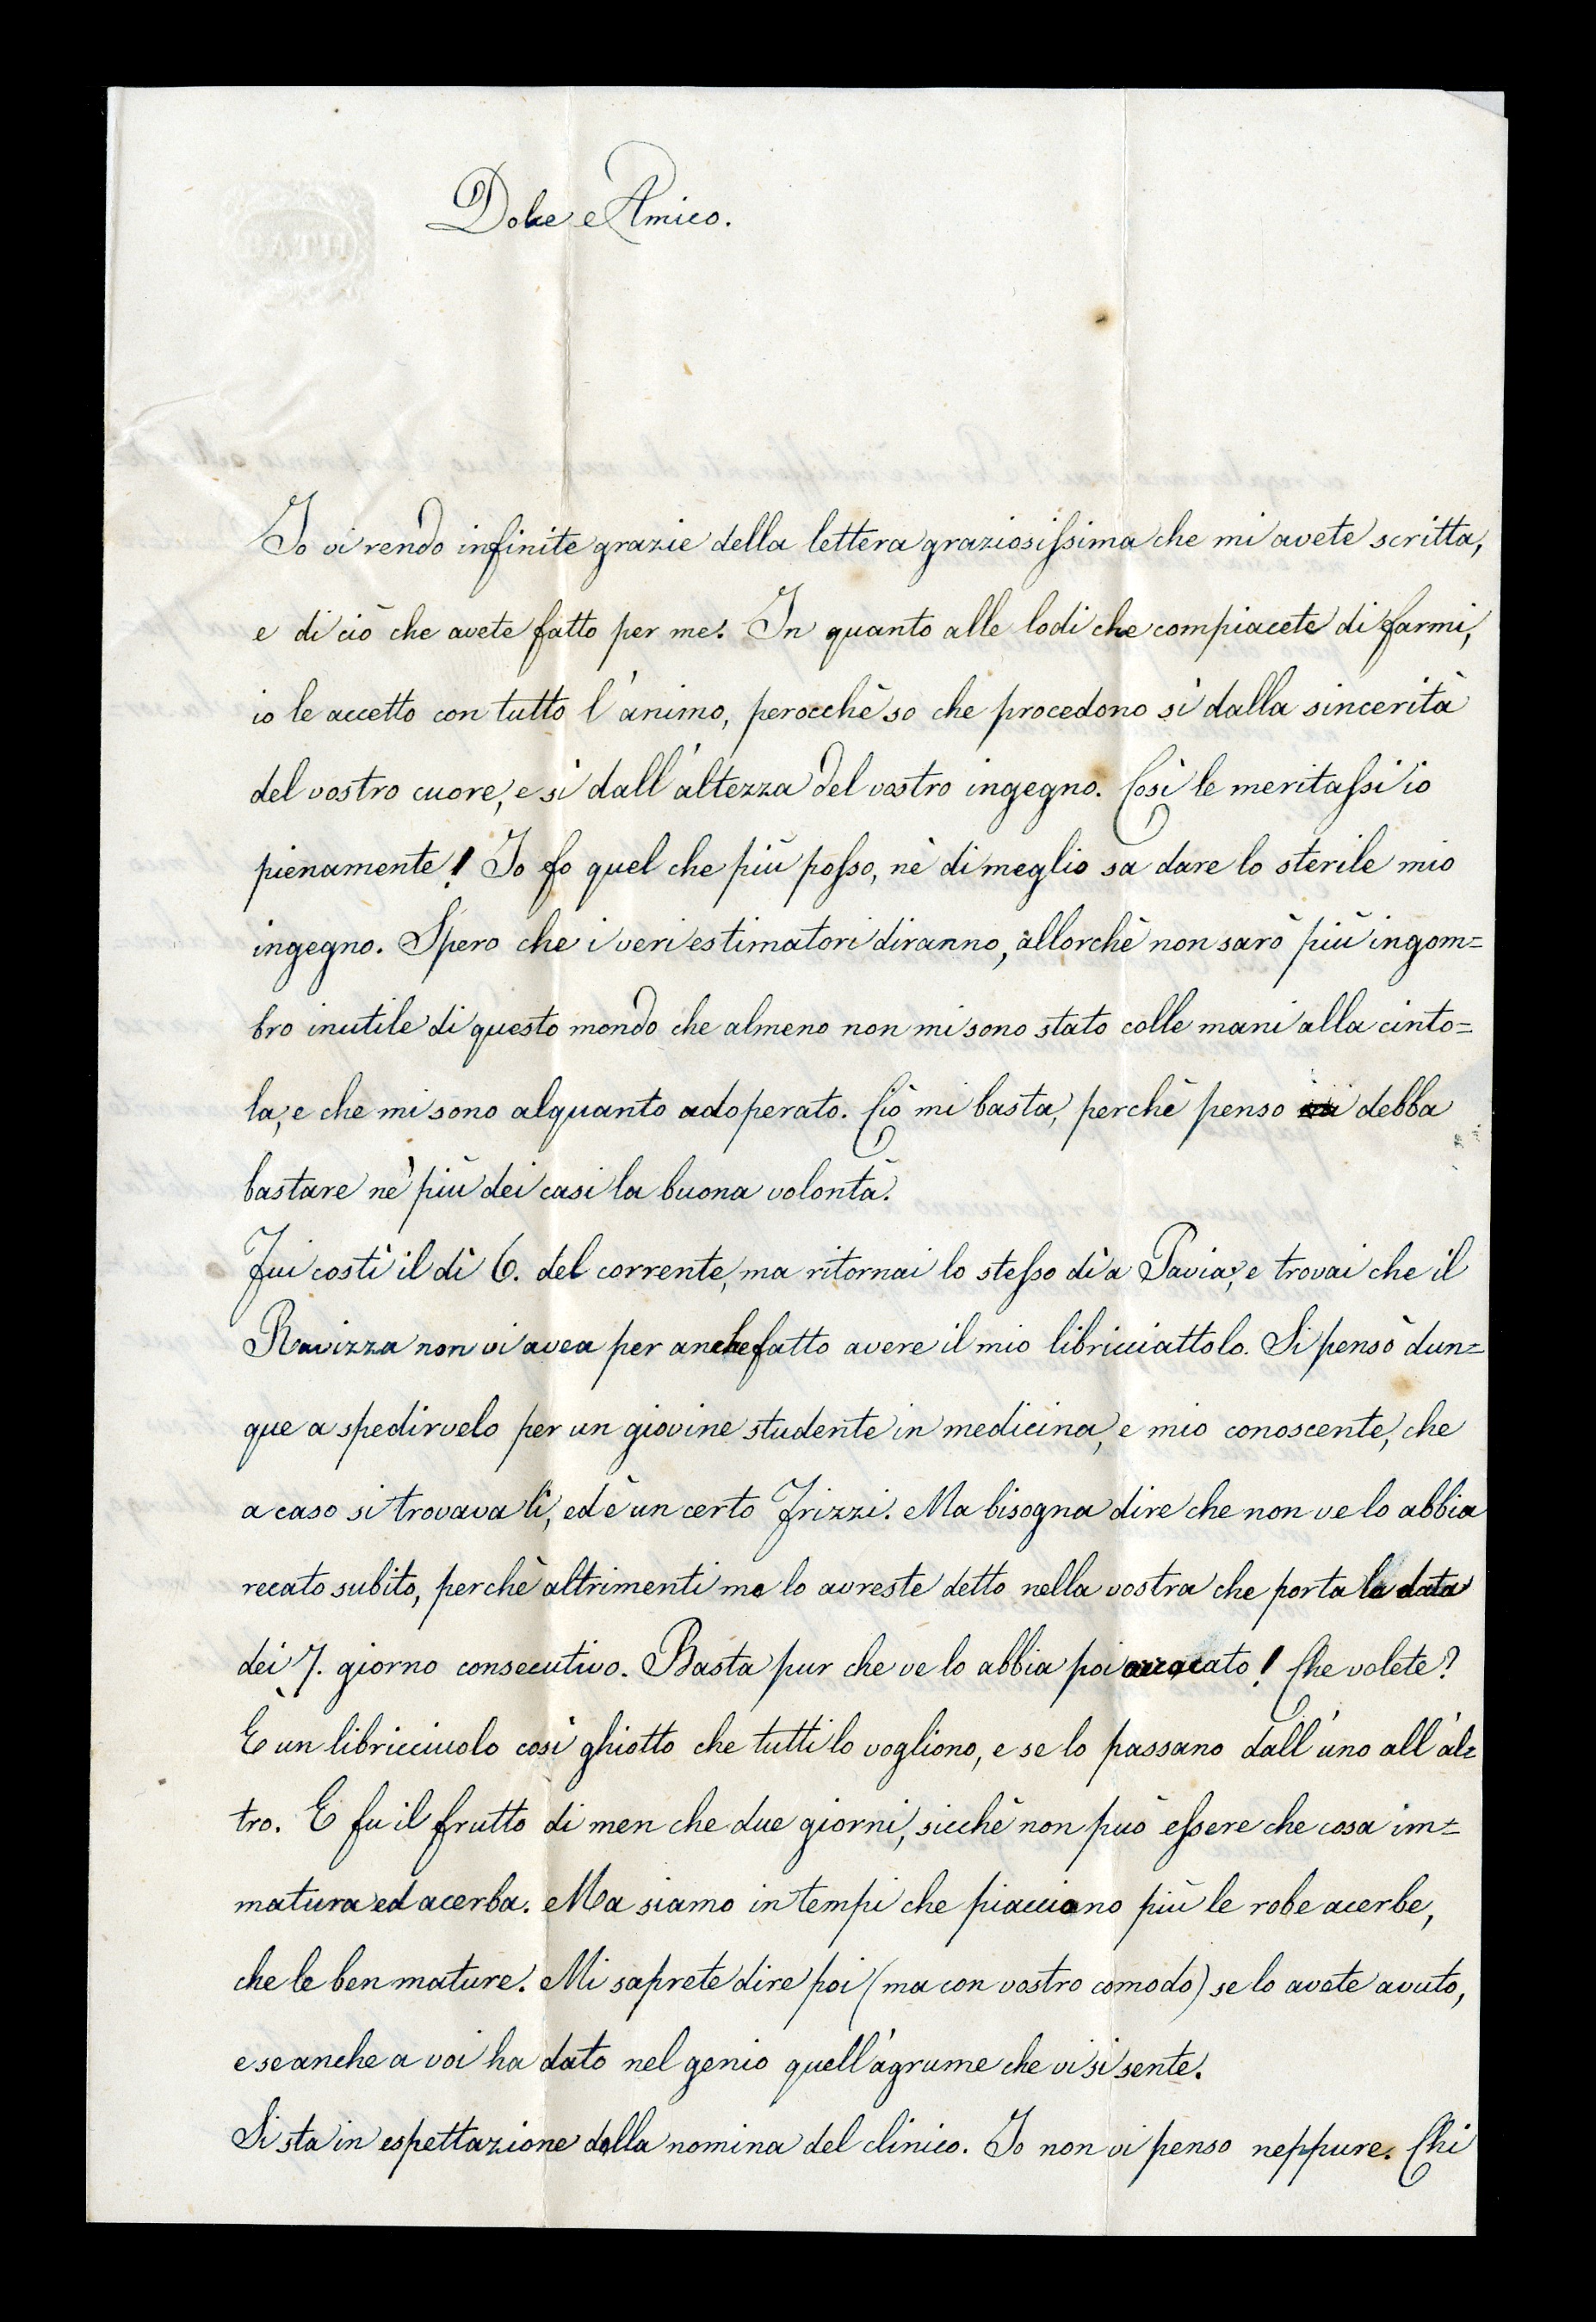 Dolce Amico.
Io vi rendo infinite grazie della lettera graziosissima che mi avete scritta,
e di ciò che avete fatto per me. In quanto alle lodi che compiacete di farmi,
io le accetto con tutto l'animo, perocchè so che procedono sì dalla sincerità
del vostro cuore, e sì dall'altezza del vostro ingegno. Così le meritassi io
pienamente! Io fo quel che più posso, nè di meglio sa dare lo sterile mio
ingegno. Spero che i veri estimatori diranno, allorchè non sarò più ingom=
bro inutile di questo mondo che almeno non mi sono stato colle mani alla cinto=
la, e che mi sono alquanto adoperato. Ciò mi basta, perchè penso debba
bastare nè più dei casi la buona volontà.
Fui costì il dì 6. del corrente, ma ritornai lo stesso dì a Pavia, e trovai che il
Ravizza non vi avea per anche fatto avere il mio libricciattolo. Si pensò dun=
que a spedirvelo per un giovine studente in medicina, e mio conoscente, che
a caso si trovava lì, ed è un certo Frizzi. Ma bisogna dire che non ve lo abbia
recato subito, perchè altrimenti me lo avreste detto nella vostra che porta la data
dei 7. giorno consecutivo. Basta pur che ve lo abbia poi ! Che volete?
È un libricciuolo così ghiotto che tutti lo vogliono, e se lo passano dall'uno all'al=
tro. E fu il frutto di men che due giorni, sicchè non può essere che cosa im=
matura ed acerba. Ma siamo in tempi che piacciono più le robe acerbe,
che le ben mature. Mi saprete dire poi (ma con vostro comodo) se lo avete avuto,
e se anche a voi ha dato nel genio quell'agrume che vi si sente.
Si sta in espettazione della nomina del clinico. Io non vi penso neppure. Chi